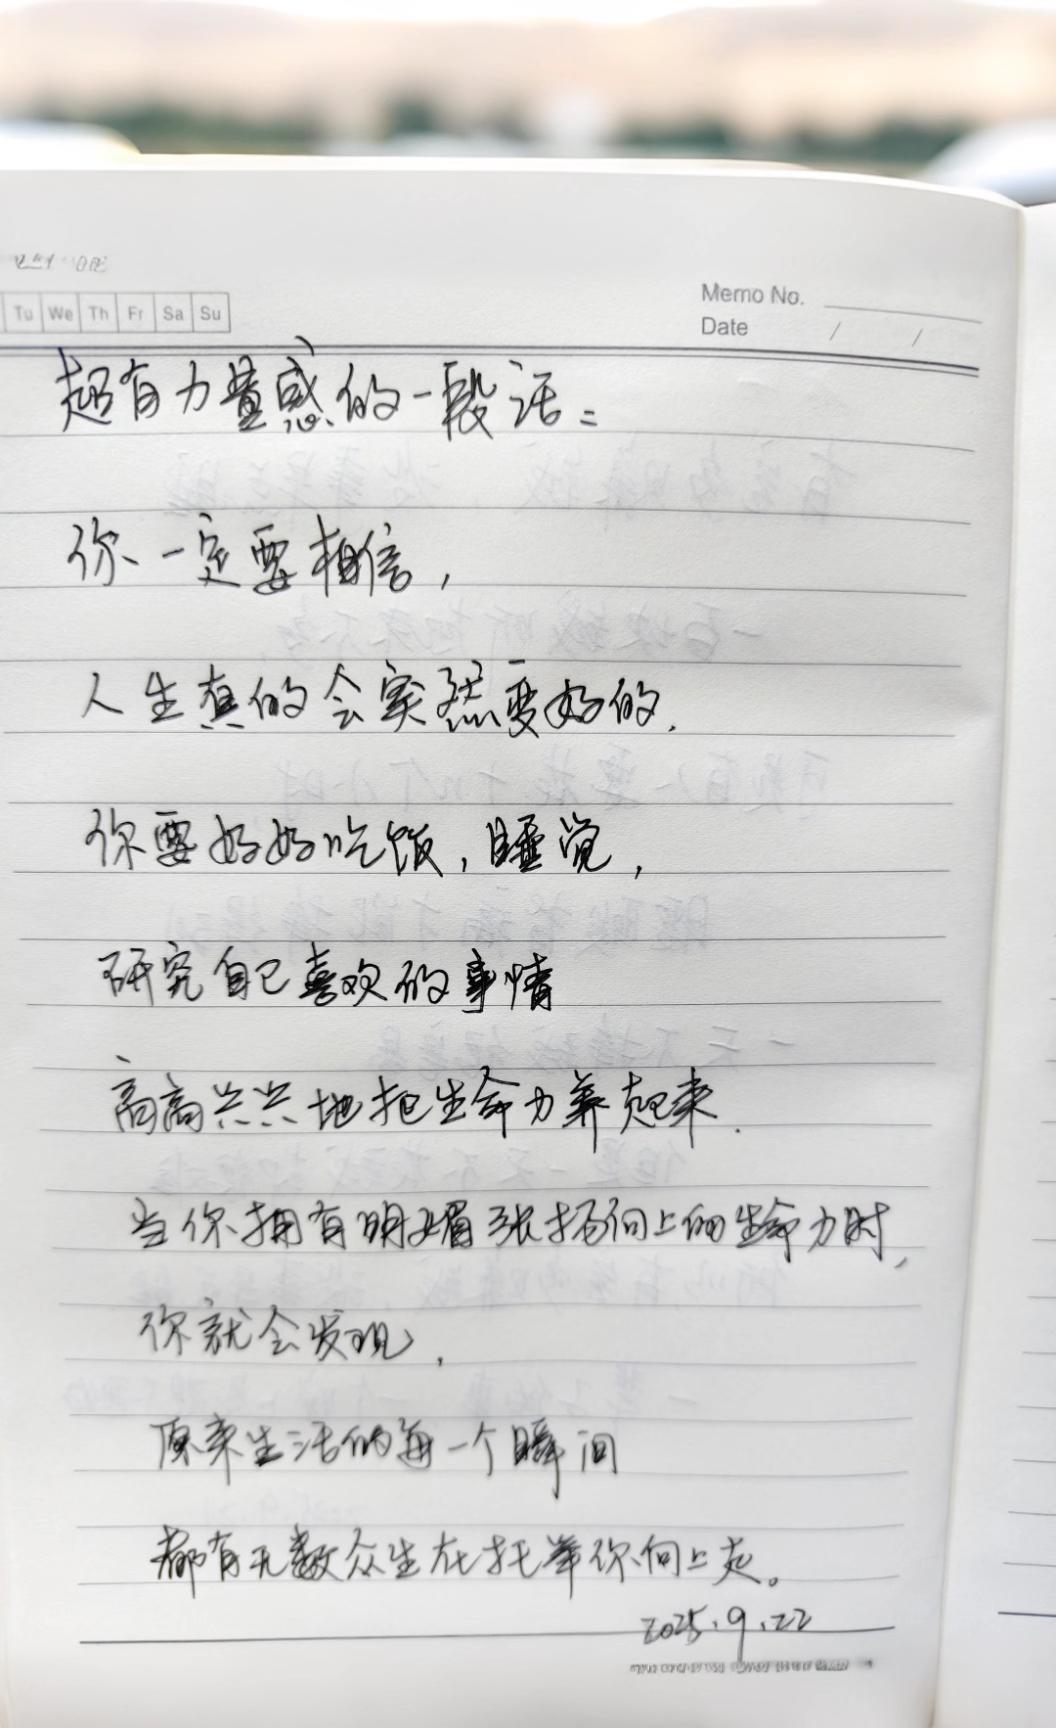 Tu We Th Fr Sa Su
Memo No.
Date / /
超有力量感的一段话：
你一定要相信，
人生真的会突然变好的.
你要好好吃饭，睡觉，
研究自己喜欢的事情
高高兴兴地把生命力养起来.
当你拥有明媚张扬向上的生命力时，
你就会发现，
原来生活的每一个瞬间
都有无数众生在托举你向上走。
2025.9.22